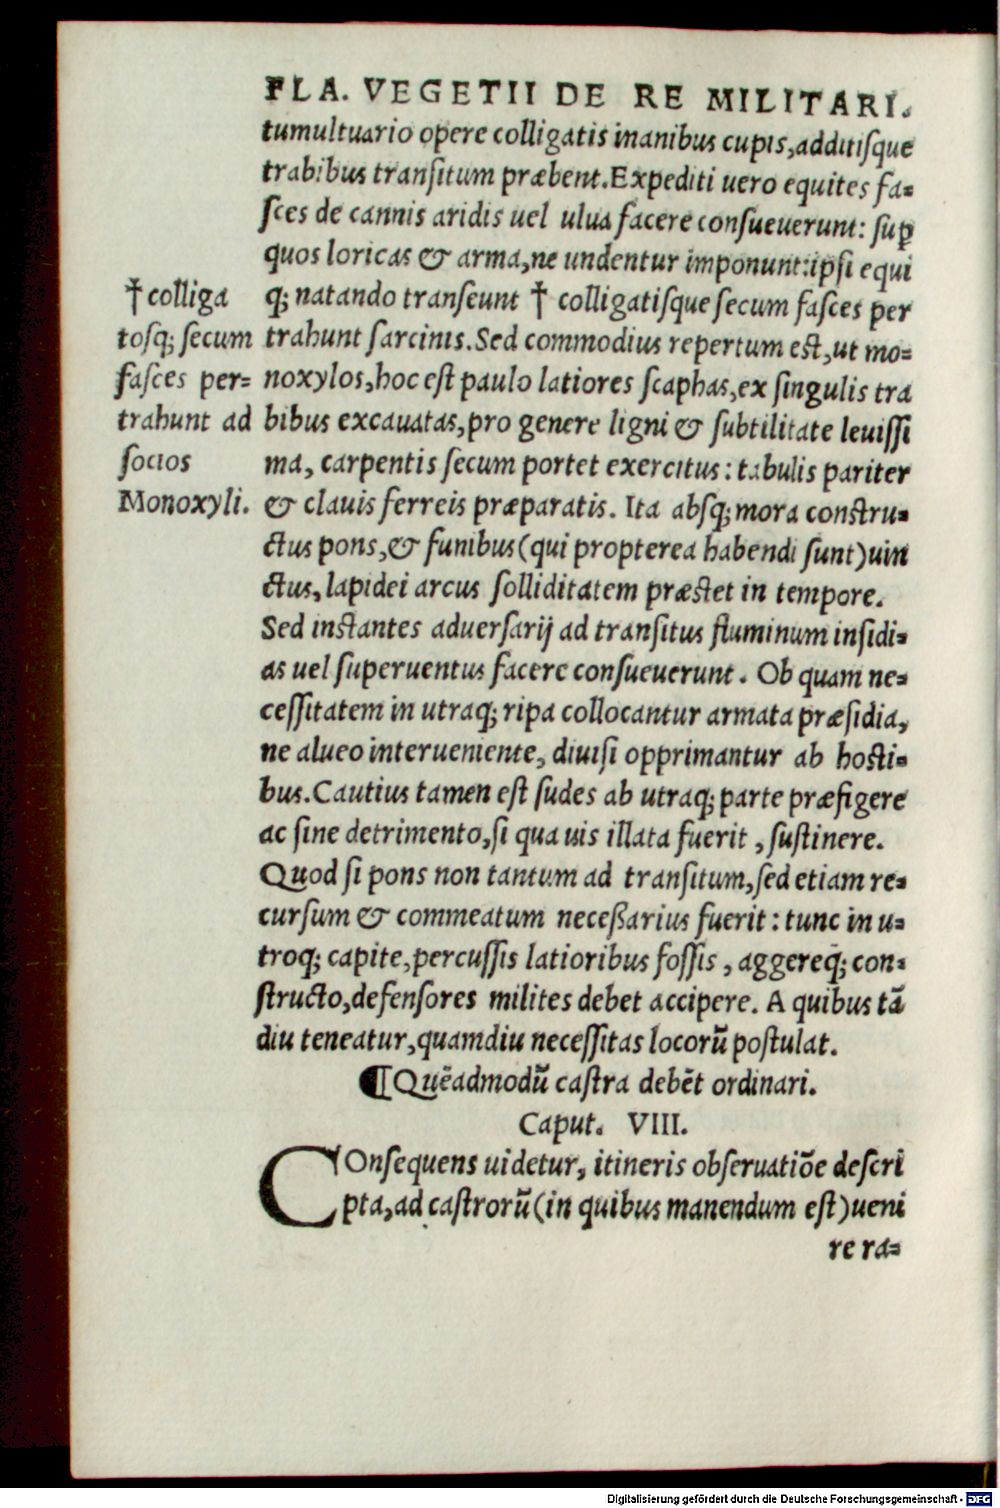 FLA. VEGETII DE RE MILITARI.
tumultuario opere colligatis inanibus cupis,additiſque
trabibus tranſitum præbent.Expediti uero equites fa=
ſces de cannis aridis uel ulua facere conſueuerunt: ſuꝑ
quos loricas & arma,ne undentur imponunt:ipſi equi
q; natando tranſeunt † colligatiſque ſecum faſces per
trahunt ſarcinis.Sed commodius repertum eſt,ut mo=
noxylos,hoc eſt paulo latiores ſcaphas,ex ſingulis tra
bibus excauatas,pro genere ligni & ſubtilitate leuiſſi
ma, carpentis ſecum portet exercitus: tabulis pariter
& clauis ferreis præparatis. Ita abſq; mora conſtru=
ctus pons,& funibus(qui propterea habendi ſunt)uin
ctus, lapidei arcus ſolliditatem præſtet in tempore.
Sed inſtantes aduerſarij ad tranſitus fluminum inſidi=
as uel ſuperuentus facere conſueuerunt. Ob quam ne=
ceſſitatem in utraq; ripa collocantur armata præſidia,
ne alueo interueniente, diuiſi opprimantur ab hoſti=
bus.Cautius tamen eſt ſudes ab utraq; parte præfigere
ac ſine detrimento,ſi qua uis illata fuerit , ſuſtinere.
Quod ſi pons non tantum ad tranſitum,ſed etiam re=
curſum & commeatum neceßarius fuerit: tunc in u=
troq; capite,percuſſis latioribus foſſis , aggereq̃; con=
ſtructo,defenſores milites debet accipere. A quibus tã
diu teneatur,quamdiu neceſſitas locorũ poſtulat.
¶Quẽadmodũ caſtra debẽt ordinari.
Caput. VIII.
COnſequens uidetur, itineris obſeruatiõe deſcri
pta,ad caſtrorũ(in quibus manendum eſt)ueni
re ra=
†colliga
toſq; ſecum
faſces per=
trahunt ad
ſocios
Monoxyli.
Digitalisierung gefördert durch die Deutsche Forschungsgemeinschaft - DFG